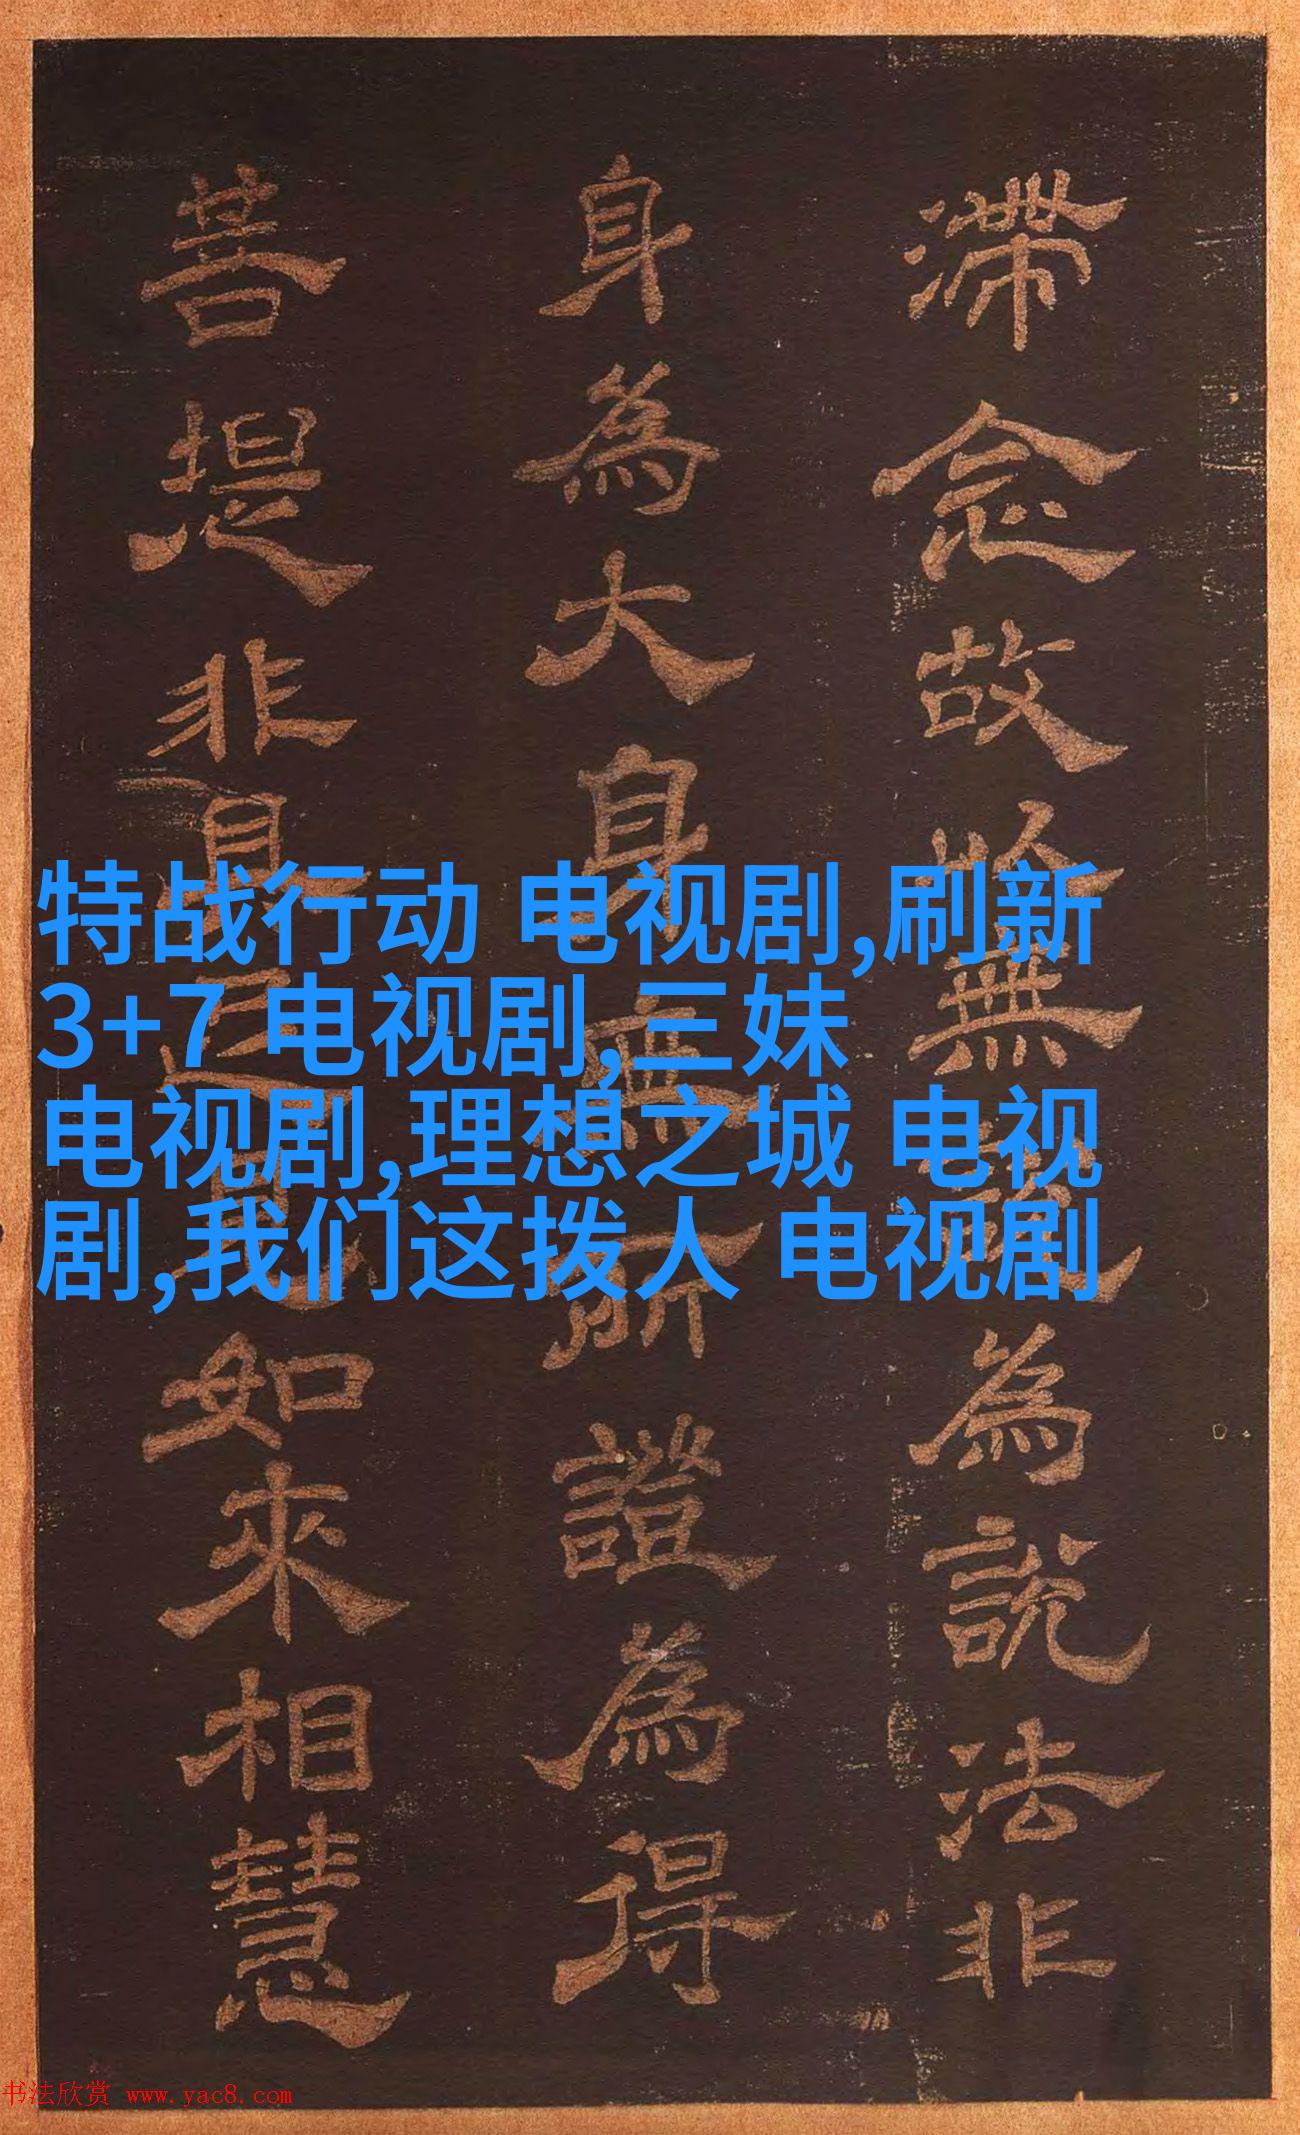 滯念故於無說為說法非
身為大身無所證為得
菩提非具足見如來相慧
特战行动 电视剧,刷新
3+7 电视剧,三妹
电视剧,理想之城 电视
剧,我们这拨人 电视剧
书法欣赏 www.yac8.com